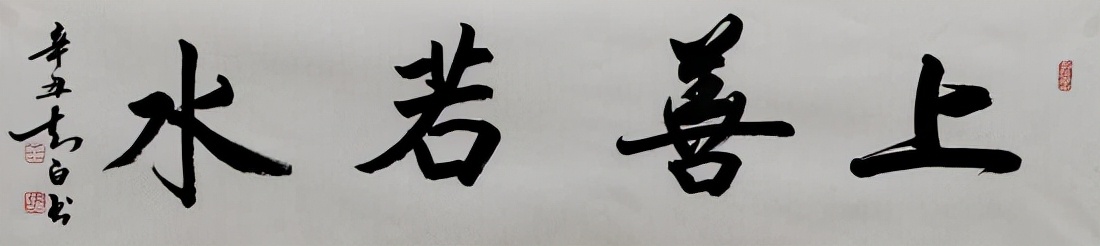 上善若水
辛丑知白书